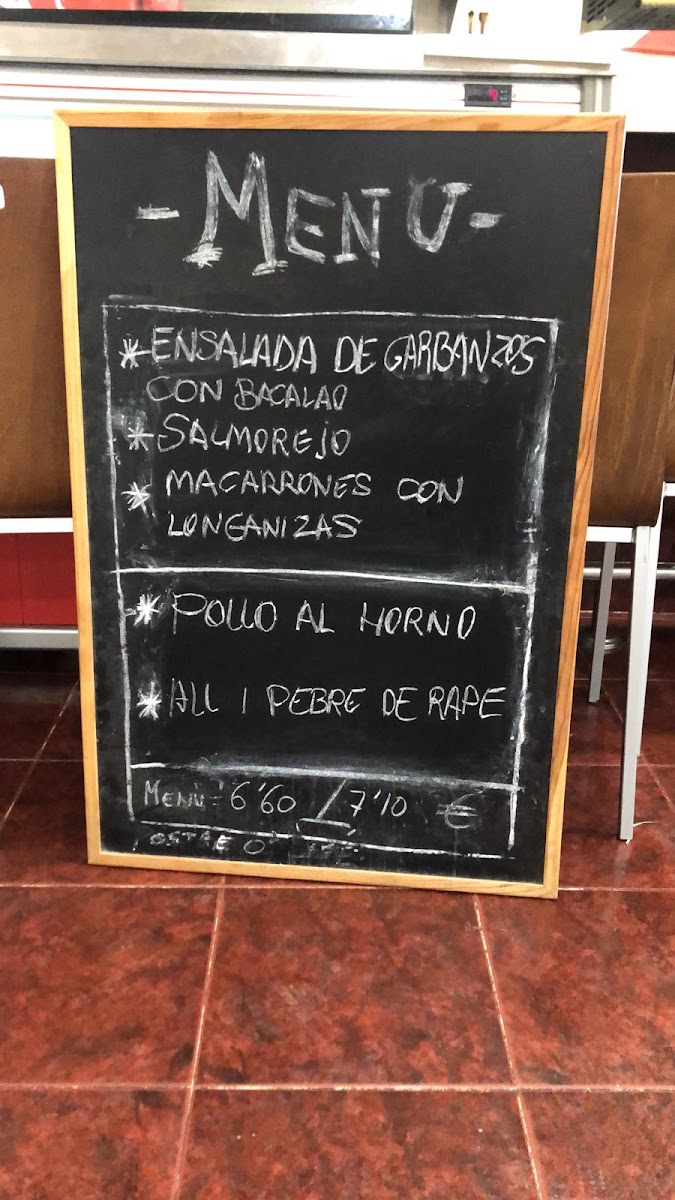 - MENU -
* ENSALADA DE GARBANZOS
CON BACALAO
* SALMOREJO
* MACARRONES CON
LONGANIZAS
* POLLO AL HORNO
* ALL I PEBRE DE RAPE
MENÚ: 6'60 / 7'10 €